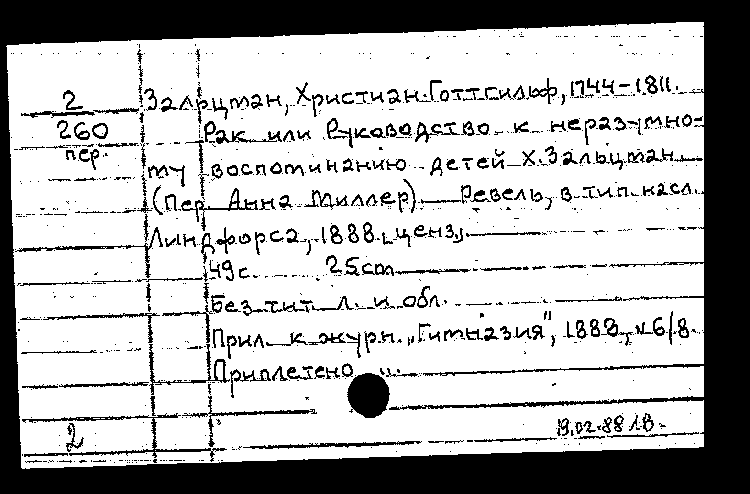 2
260
пер.
Зальцман, Христиан Готтгильф, 1744-1811.
Рак или Руководство к неразумно-
му воспоминанию детей Х. Зальцман.
(Пер Анна Миллер). Ревель, в тип. насл.
Линдфорса, 1888 „ценз„.
49 с. 25 cm
Без тит. л. и обл.
Прил. к журн. „Гимназия", 1888, № 6/8.
Приплетено
2
19.02.88